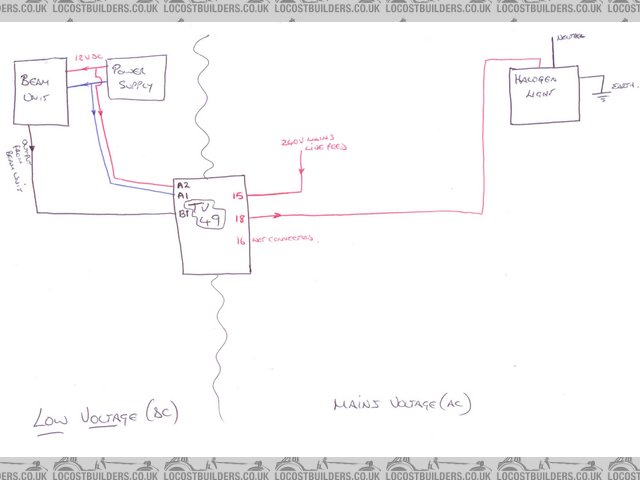 LOCOSTBUILDERS.CO.UK LOCOSTBUILDERS.CO.UK LOCOSTBUILDERS.CO.UK LOCOSTBUILDERS.CO.UK
NEUTRAL
12V DC
BEAM
UNIT
POWER
SUPPLY
HALOGEN
LIGHT
EARTH.
OUTPUT
FROM
BEAM UNIT
240V MAINS
LIVE FEED
A2
A1
B1
TV
49
15
18
16 NOT CONNECTED.
LOW VOLTAGE (DC)
MAINS VOLTAGE (AC)
LOCOSTBUILDERS.CO.UK LOCOSTBUILDERS.CO.UK LOCOSTBUILDERS.CO.UK LOCOSTBUILDERS.CO.UK